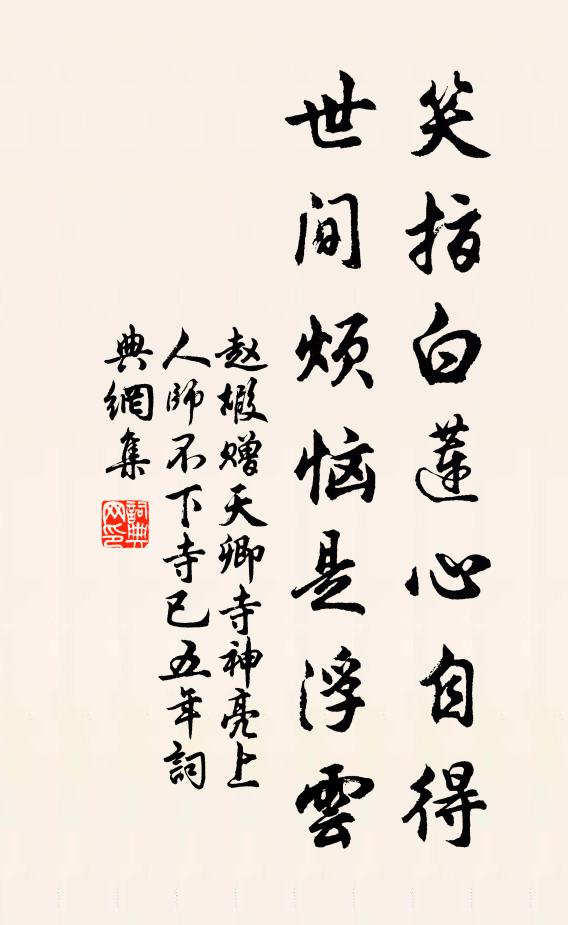 笑指白蓮心自得
世间烦恼是浮雲
赵嘏赠天卿寺神亮上
人師不下寺已五年詞
典網集
詞典网印